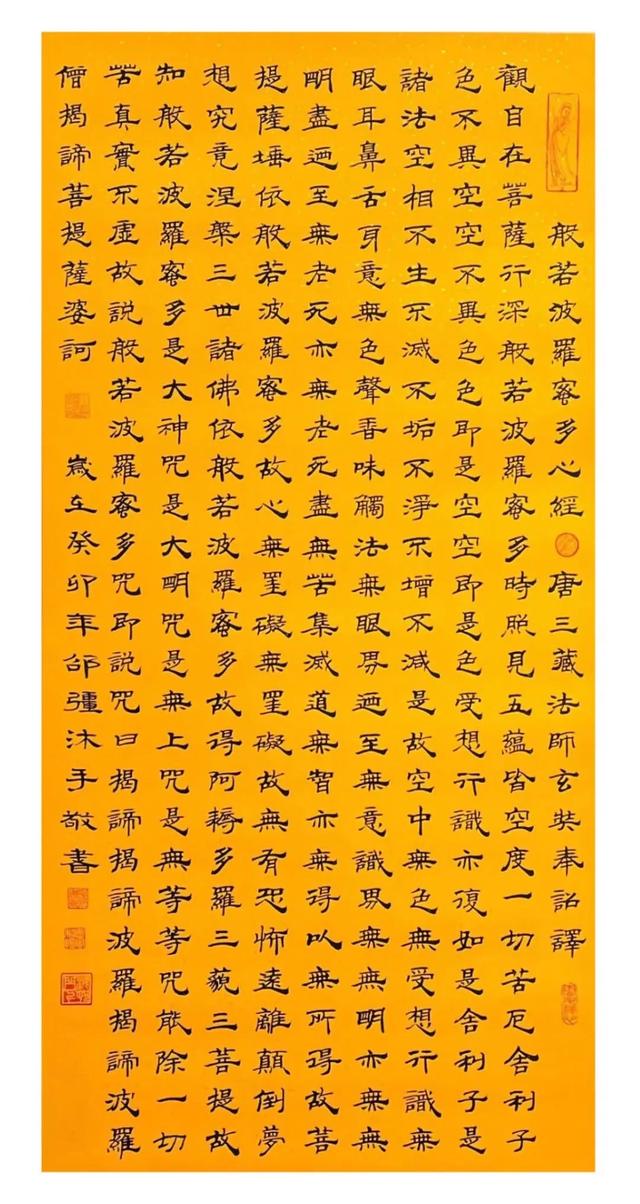 般若波羅蜜多心經 唐三藏法師玄奘奉詔譯
觀自在菩薩行深般若波羅蜜多時照見五蘊皆空度一切苦厄舍利子
色不異空空不異色色即是空空即是色受想行識亦復如是舍利子是
諸法空相不生不滅不垢不淨不增不減是故空中無色無受想行識無
眼耳鼻舌身意無色聲香味觸法無眼界迺至無意識界無無明亦無無
明盡迺至無老死亦無老死盡無苦集滅道無智亦無得以無所得故菩
提薩埵依般若波羅蜜多故心無罣礙無罣礙故無有恐怖遠離顛倒夢
想究竟涅槃三世諸佛依般若波羅蜜多故得阿耨多羅三藐三菩提故
知般若波羅蜜多是大神咒是大明咒是無上咒是無等等咒能除一切
苦真實不虛故說般若波羅蜜多咒即說咒曰揭諦揭諦波羅揭諦波羅
僧揭諦菩提薩婆訶 歲在癸卯年邵彊沐手敬書